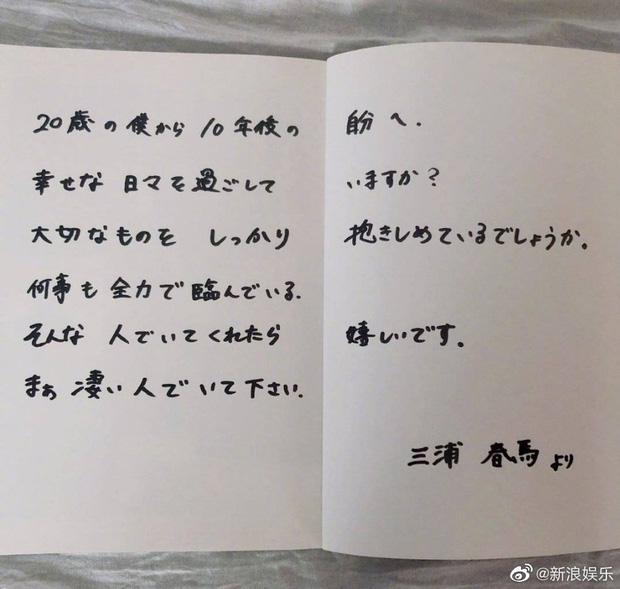 20歳の僕から 10年後の 自分へ.
幸せな 日々を過ごして いますか？
大切なものを しっかり 抱きしめているでしょうか。
何事も 全力で臨んでいる.
そんな 人でいてくれたら 嬉しいです。
まぁ 凄い人でいて下さい.
三浦 春馬 より
@新浪娱乐